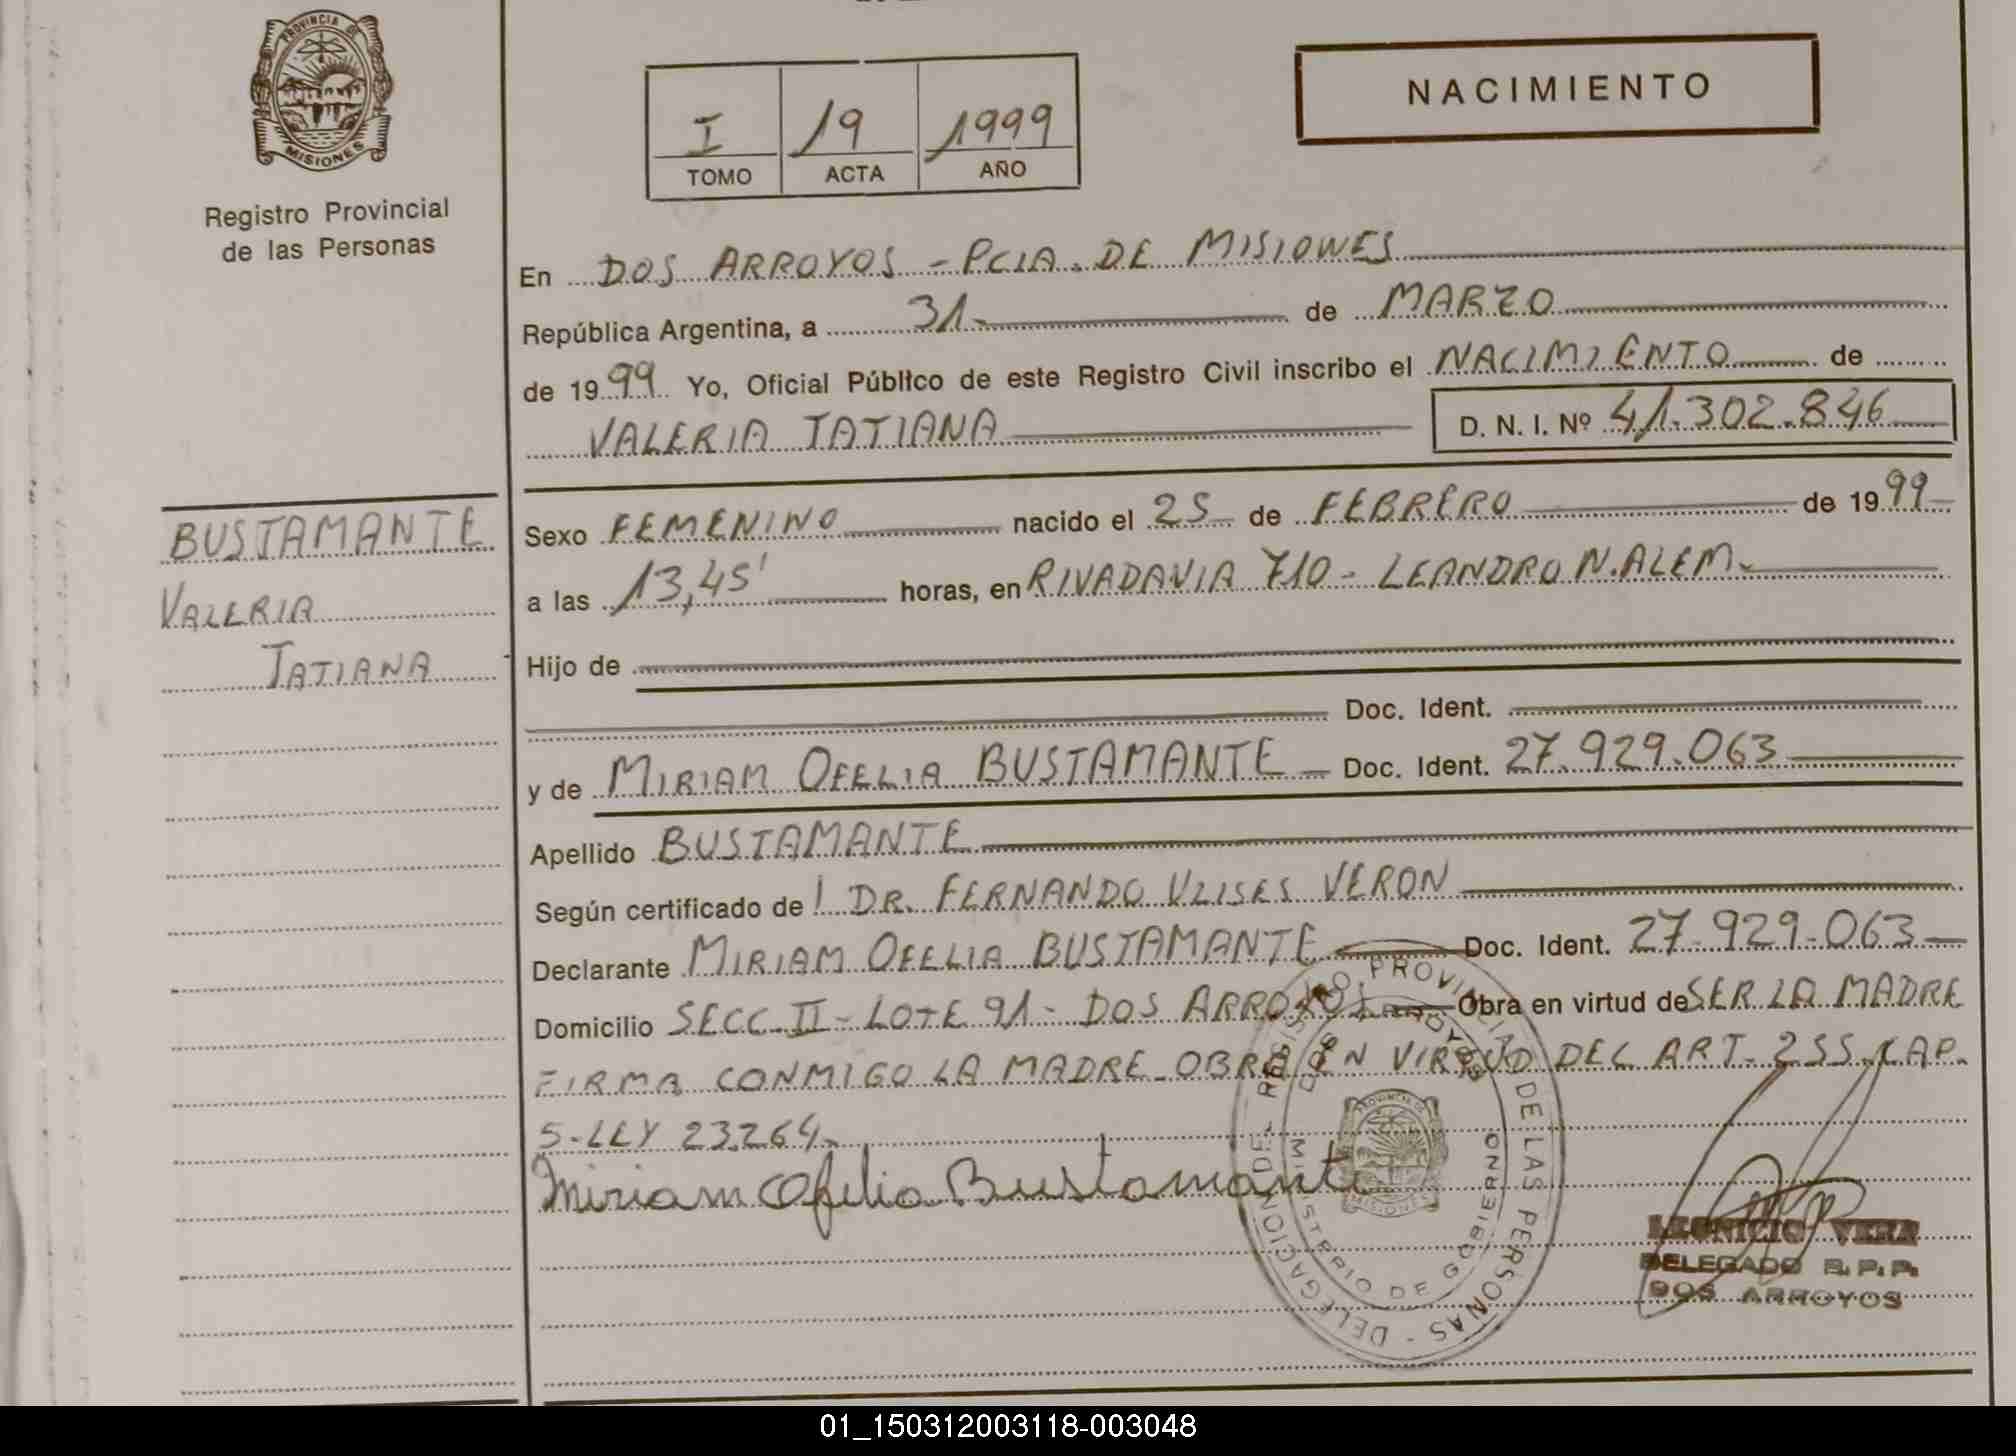 PROVINCIA DE
MISIONES
Registro Provincial
de las Personas
I 19 1999
TOMO ACTA AÑO
NACIMIENTO
En DOS ARROYOS - PCIA. DE MISIONES
República Argentina, a 31 de MARZO
de 1999 Yo, Oficial Público de este Registro Civil inscribo el NACIMIENTO de
VALERIA TATIANA D. N. I. Nº 41.302.846
BUSTAMANTE
VALERIA
TATIANA
Sexo FEMENINO nacido el 25 de FEBRERO de 1999
a las 13,45' horas, en RIVADAVIA 710 - LEANDRO N. ALEM.
Hijo de
Doc. Ident.
y de MIRIAM OFELIA BUSTAMANTE Doc. Ident. 27.929.063
Apellido BUSTAMANTE
Según certificado de l DR. FERNANDO ULISES VERON
Declarante MIRIAM OFELIA BUSTAMANTE Doc. Ident. 27.929.063
Domicilio SECC. II - LOTE 91 - DOS ARROYOS Obra en virtud de SER LA MADRE
FIRMA CONMIGO LA MADRE OBRA EN VIRTUD DEL ART. 255. CAP.
5 - LEY 23.264.
Miriam Ofelia Bustamante
REGISTRO PROVINCIAL DE LAS PERSONAS - DELEGACION
DOS ARROYOS
MINISTERIO DE GOBIERNO
PROVINCIA DE
MISIONES
LEONICIO VERA
DELEGADO R. P. P.
DOS ARROYOS
01_150312003118-003048